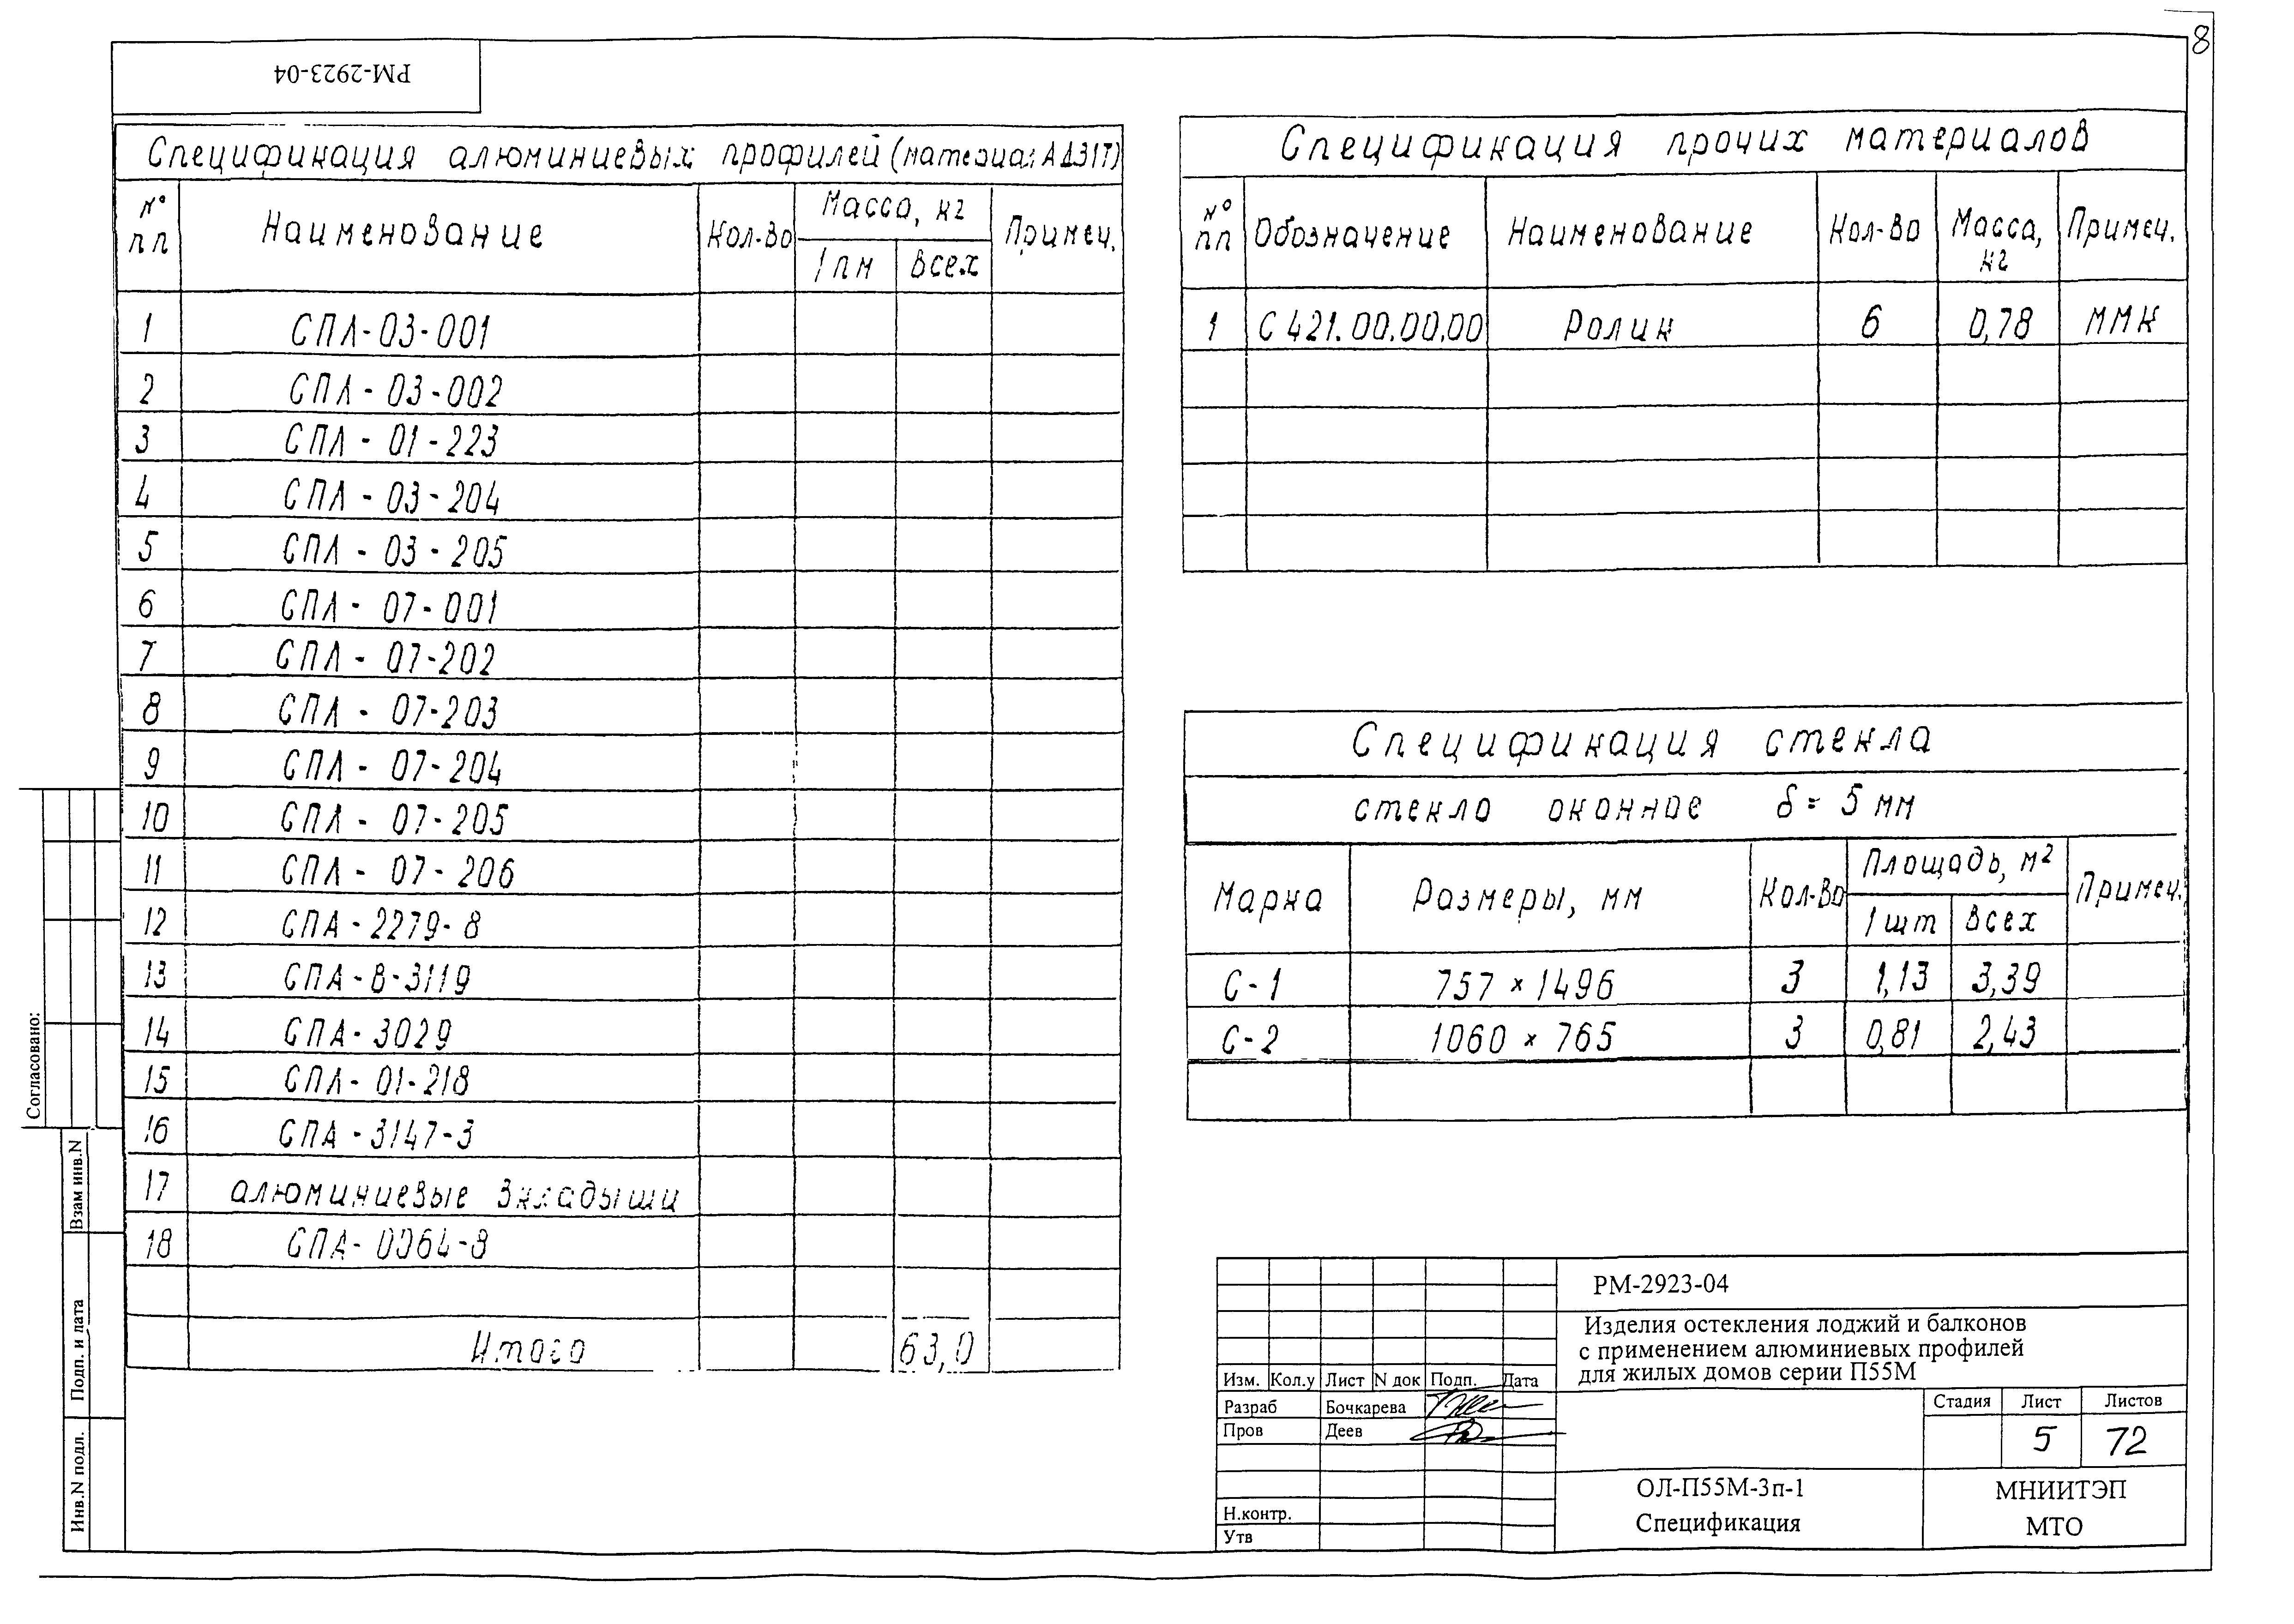 8
РМ-2923-04
Спецификация алюминиевых профилей (материал АД31Т)
№ пп Наименование Кол-во Масса, кг Примеч.
1 пм Всех
1 СПЛ-03-001
2 СПЛ-03-002
3 СПЛ-01-223
4 СПЛ-03-204
5 СПЛ-03-205
6 СПЛ-07-001
7 СПЛ-07-202
8 СПЛ-07-203
9 СПЛ-07-204
10 СПЛ-07-205
11 СПЛ-07-206
12 СПА-2279-8
13 СПА-В-3119
14 СПА-3029
15 СПЛ-01-218
16 СПА-3147-3
17 алюминиевые вкладыши
18
Итого 63,0
Спецификация прочих материалов
№ пп Обозначение Наименование Кол-во Масса, кг Примеч.
1 С 421.00.00.00 Ролик 6 0,78 ММК
Спецификация стекла
стекло оконное δ = 5 мм
Марка Размеры, мм Кол-во Площадь, м² Примеч.
1 шт Всех
С-1 757 × 1496 3 1,13 3,39
С-2 1060 × 765 3 0,81 2,43
Согласовано:
Взам инв.N
Подп. и дата
Инв.N подл.
РМ-2923-04
Изделия остекления лоджий и балконов
с применением алюминиевых профилей
для жилых домов серии П55М
Изм. Кол.у Лист N док Подп. Дата
Разраб Бочкарева
Пров Деев
Н.контр.
Утв
Стадия Лист Листов
5 72
ОЛ-П55М-3п-1
Спецификация
МНИИТЭП
МТО